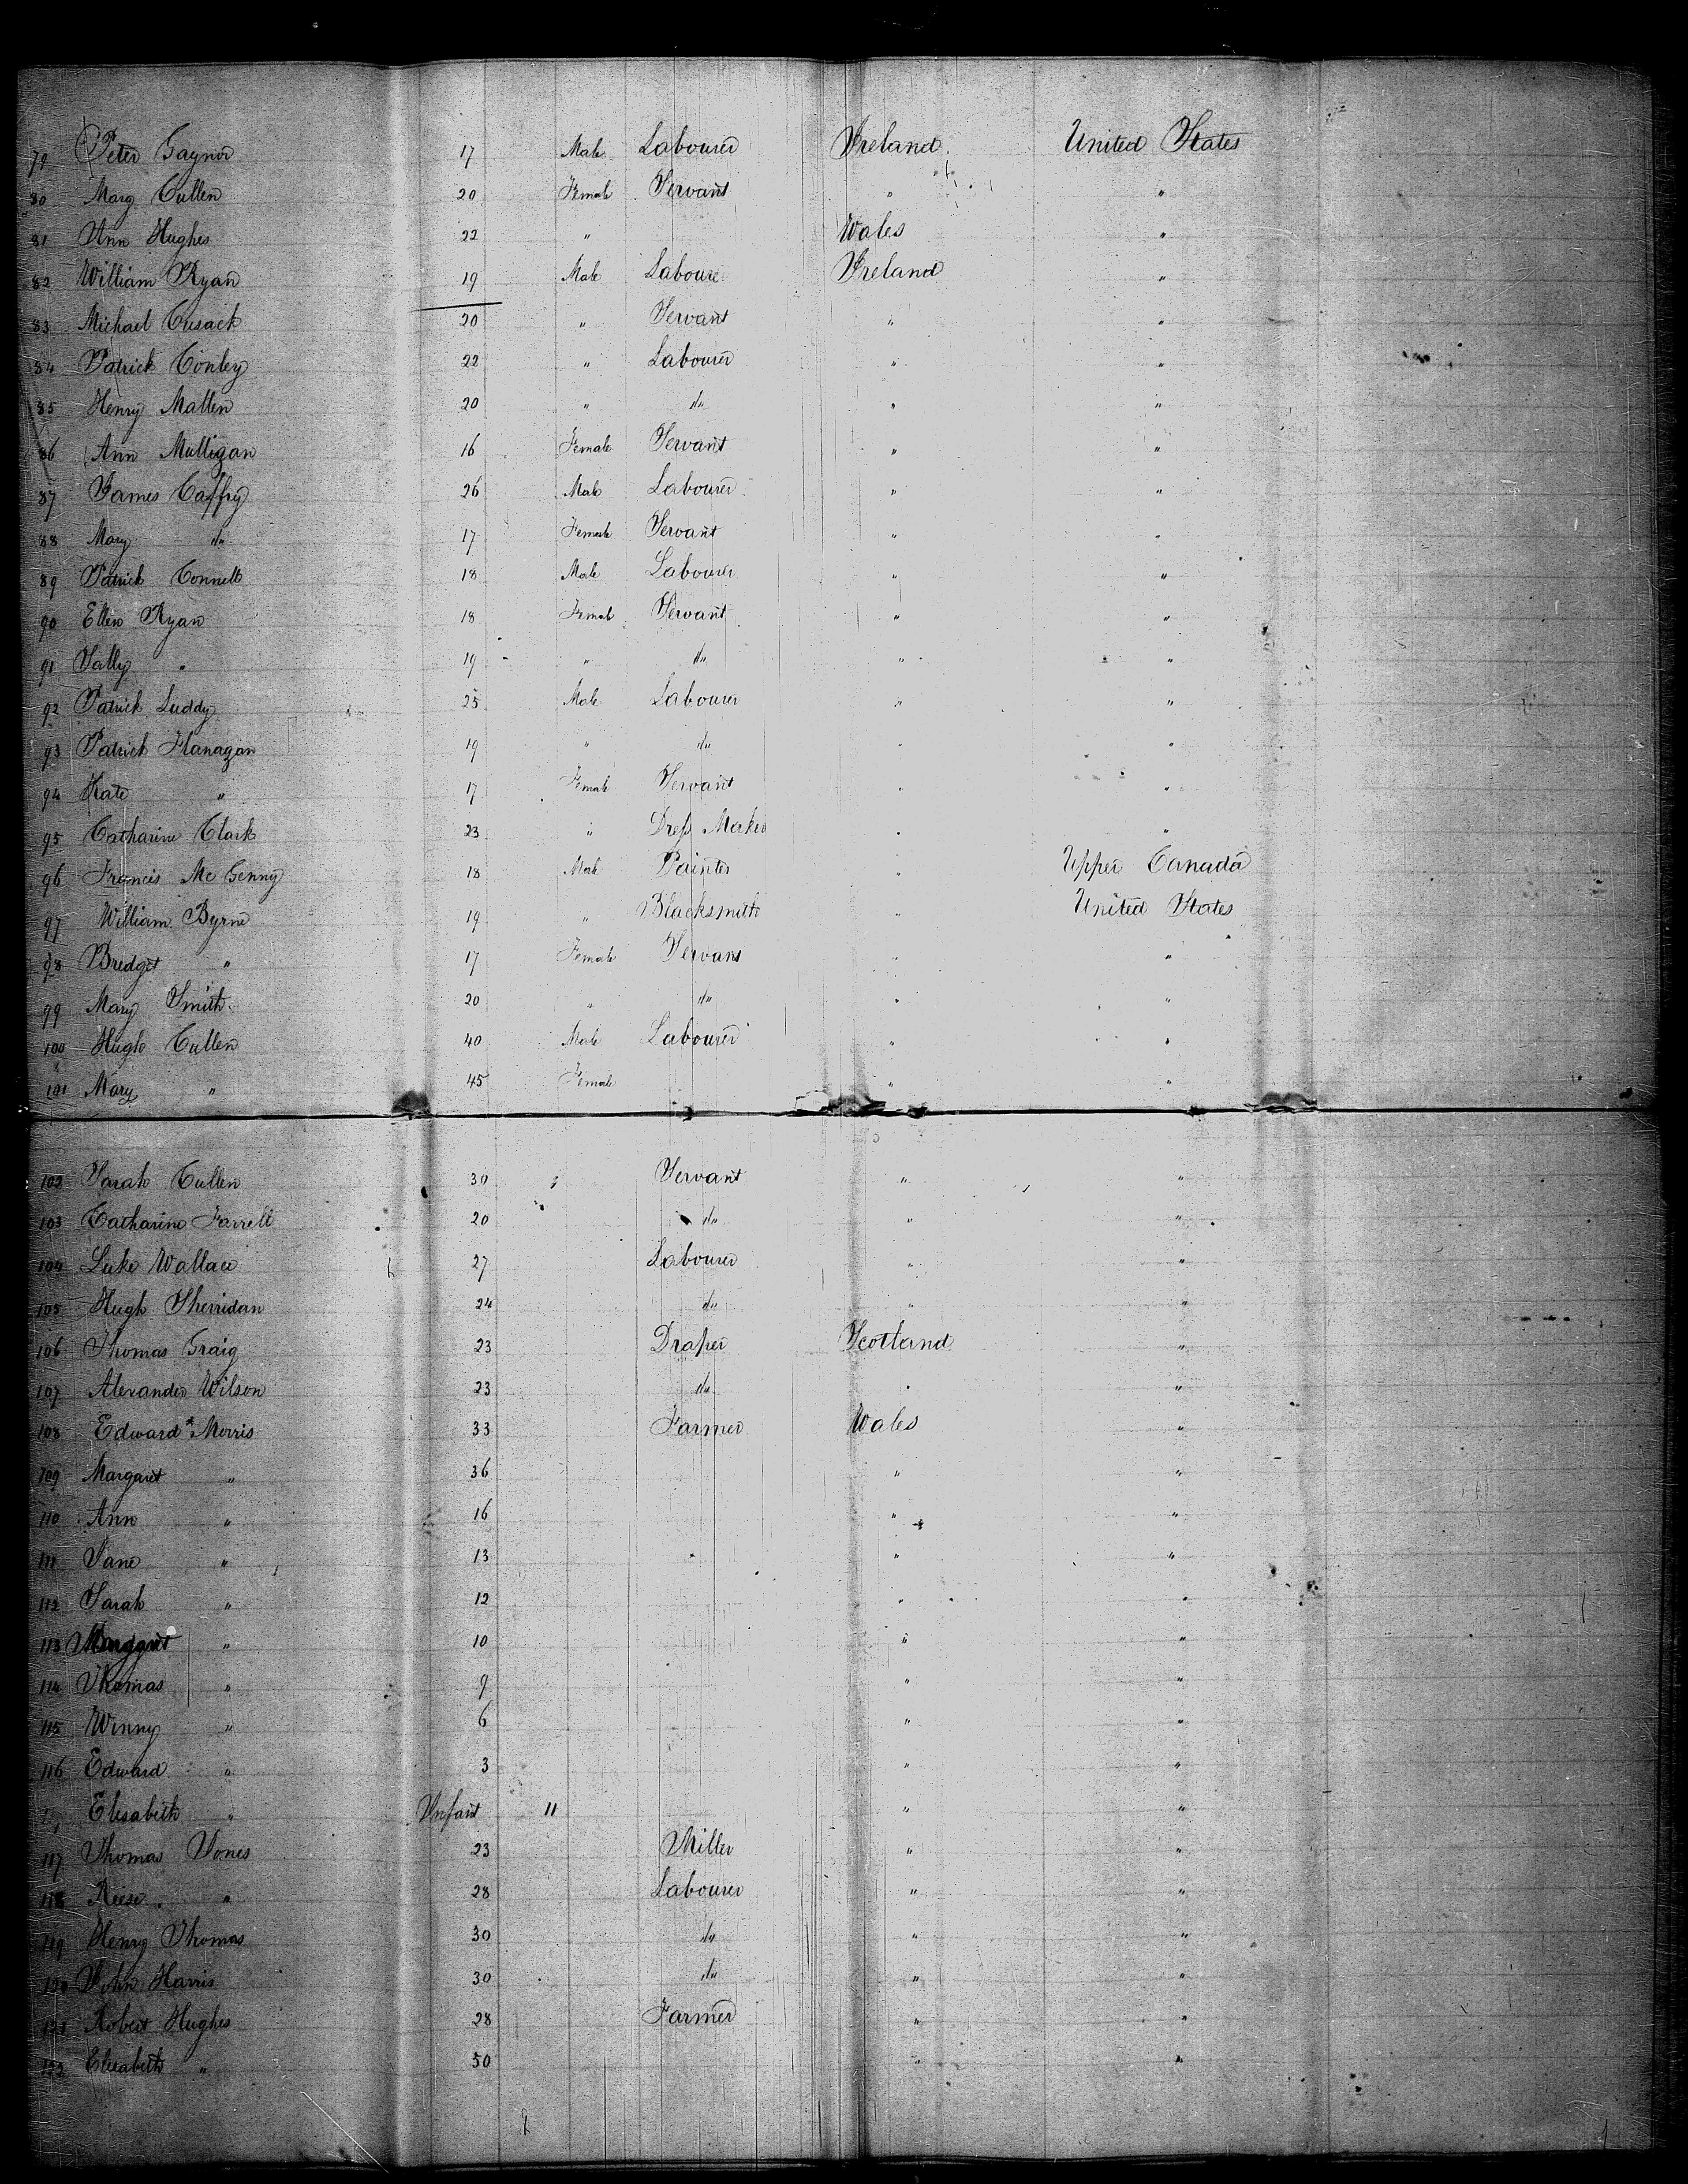 79 Peter Gaynor 17 Male Labourer Ireland United States
80 Marg Cullen 20 Female Servant " "
81 Ann Hughes 22 " Wales "
82 William Ryan 19 Male Labourer Ireland "
83 Michael Cusack 20 " Servant " "
84 Patrick Conley 22 " Labourer " "
85 Henry Mallen 20 " do " "
86 Ann Mulligan 16 Female Servant " "
87 James Caffry 26 Male Labourer " "
88 Mary do 17 Female Servant " "
89 Patrick Connell 18 Male Labourer " "
90 Ellen Ryan 18 Female Servant " "
91 Sally " 19 " do " "
92 Patrick Luddy 25 Male Labourer " "
93 Patrick Flanagan 19 " do " "
94 Kate " 17 Female Servant " "
95 Catharine Clark 23 " Dress Maker " "
96 Francis Mc Genny 18 Male Painter " Upper Canada
97 William Byrne 19 " Blacksmith " United States
98 Bridget " 17 Female Servant " "
99 Mary Smith 20 " do " "
100 Hugh Cullen 40 Male Labourer " "
101 Mary " 45 Female " "
102 Sarah Cullen 30 Servant " "
103 Catharine Farrell 20 do " "
104 Luke Wallace 27 Labourer " "
105 Hugh Sherridan 24 do " "
106 Thomas Graig 23 Draper Scotland "
107 Alexander Wilson 23 do " "
108 Edward Morris 33 Farmer Wales "
109 Margaret " 36 " "
110 Ann " 16 " "
111 Jane " 13 " "
112 Sarah " 12 " "
113 Margaret " 10 " "
114 Thomas " 9 " "
115 Winny " 6 " "
116 Edward " 3 " "
Elisabeth " Infant 11 " "
117 Thomas Jones 23 Miller " "
118 Reese " 28 Labourer " "
119 Henry Thomas 30 do " "
120 John Harris 30 do " "
121 Robert Hughes 28 Farmer " "
122 Elisabeth " 50 " "